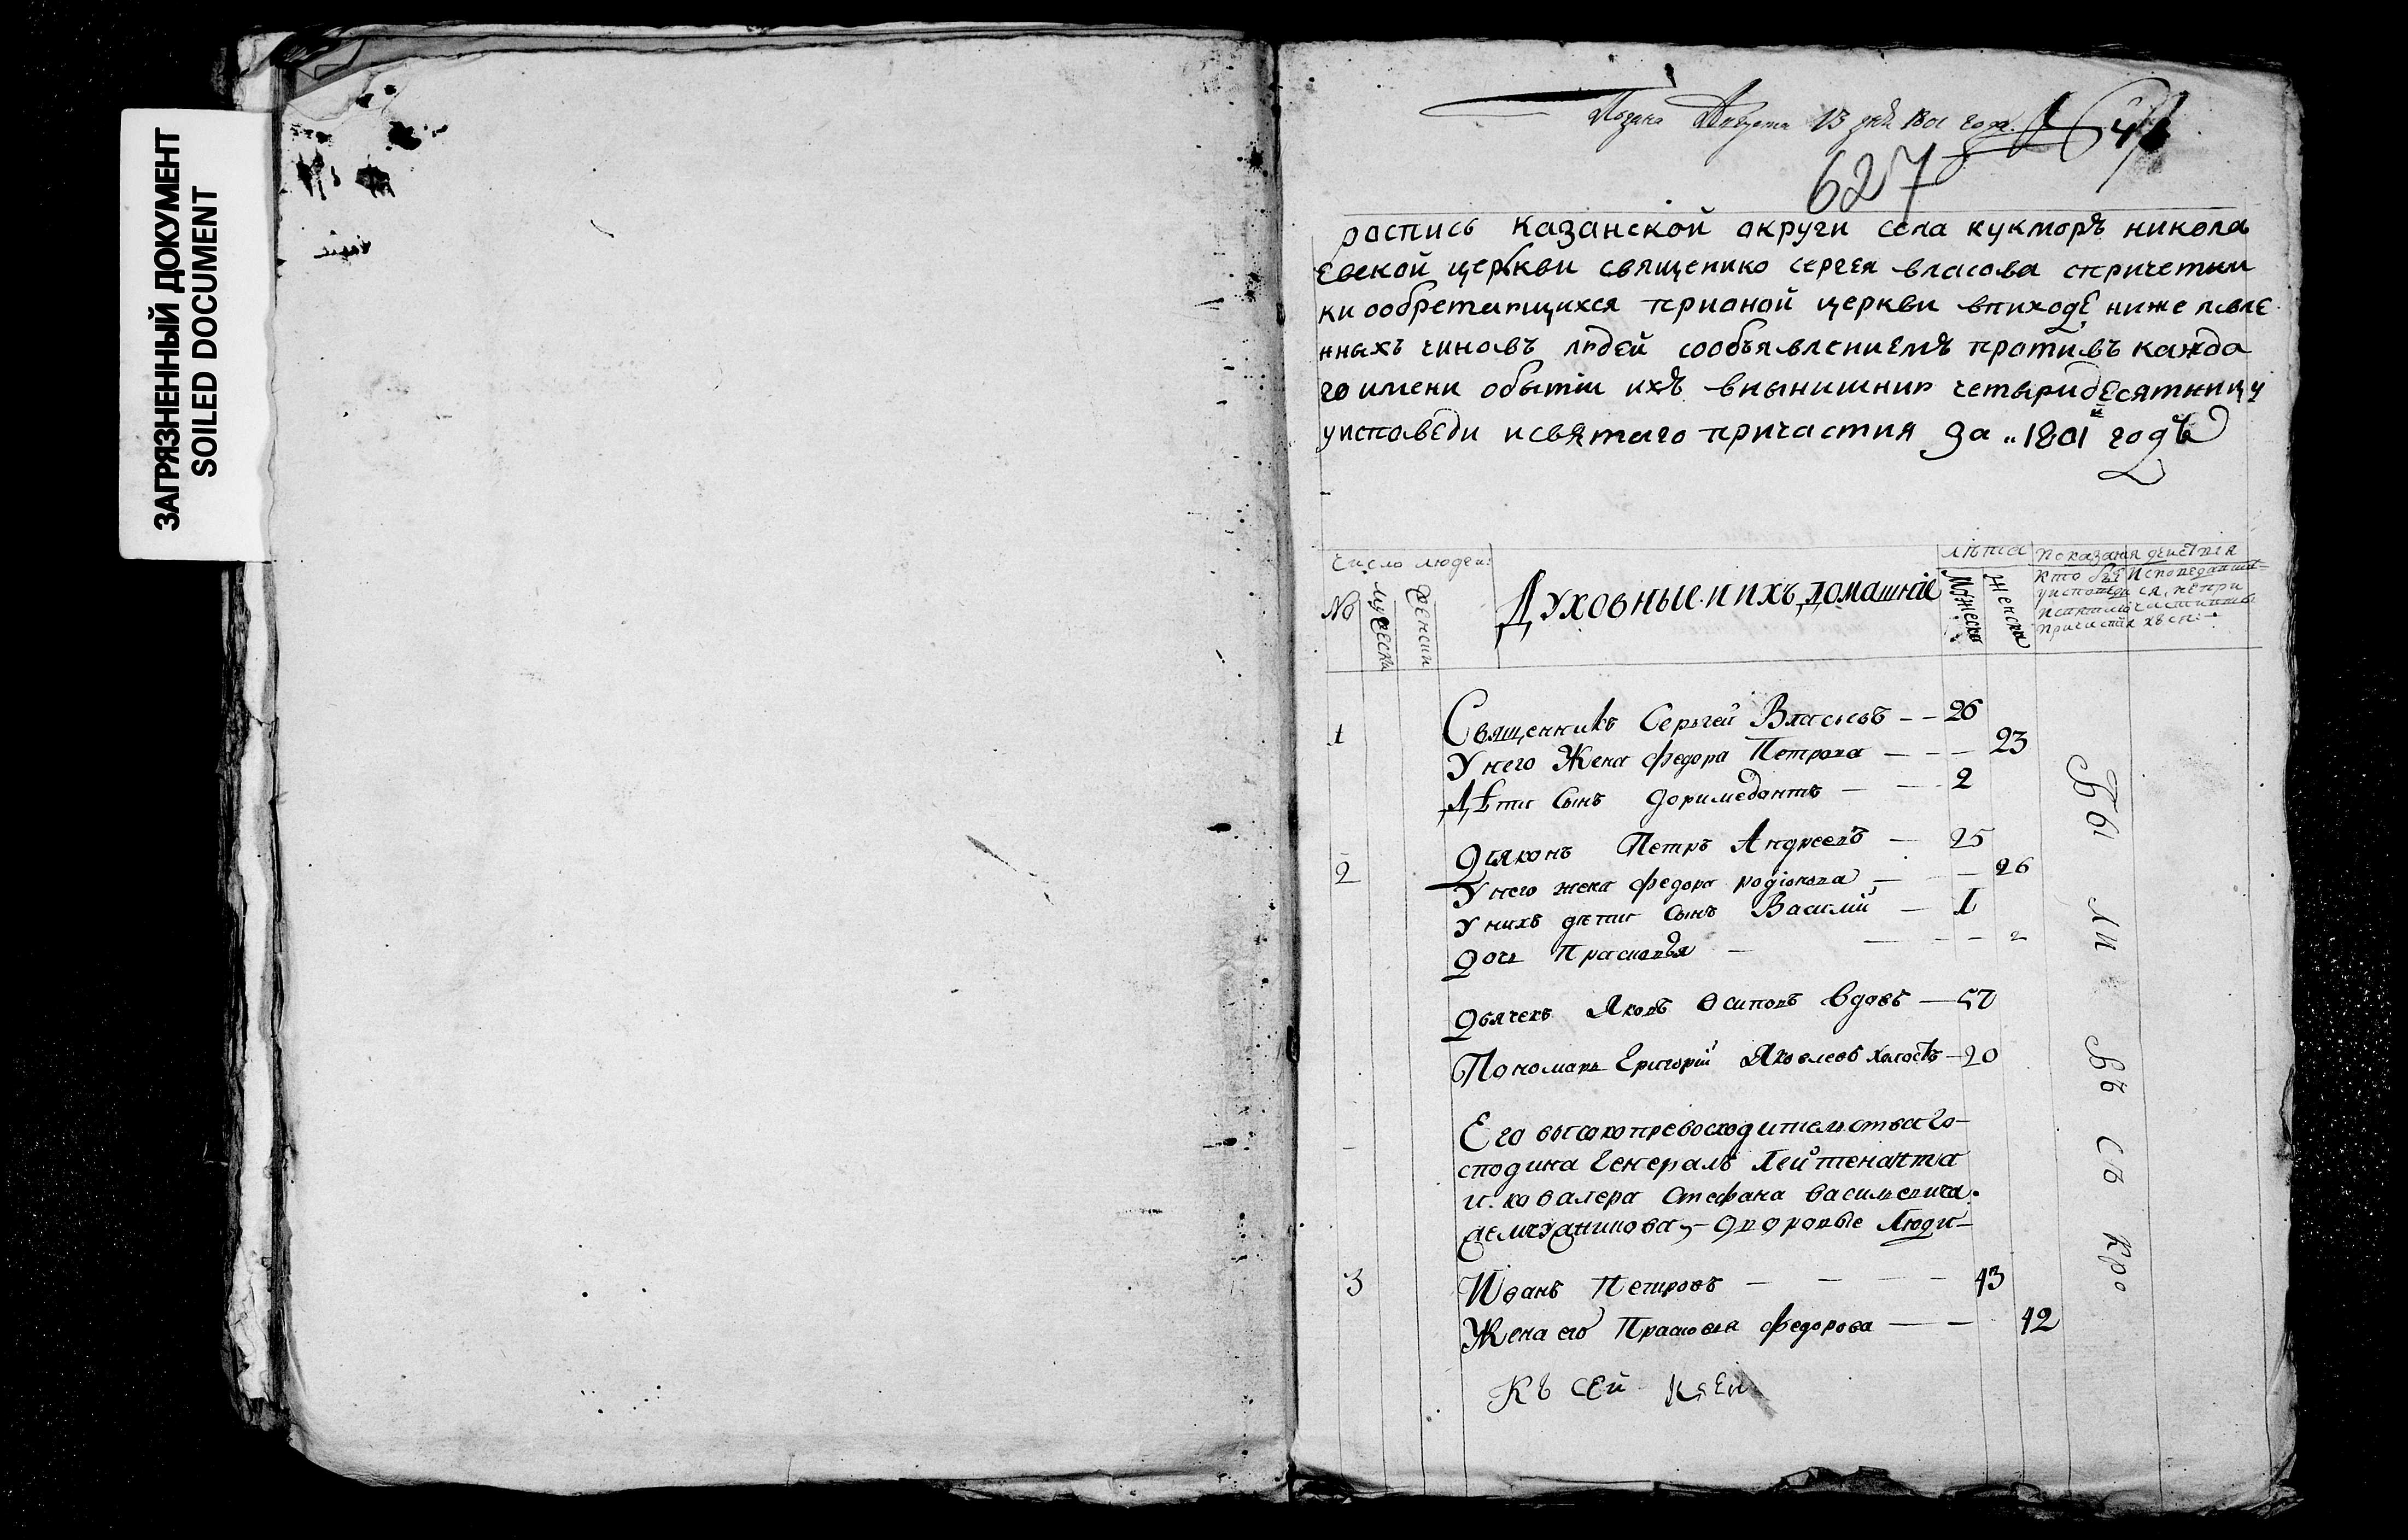 ЗАГРЯЗНЕННЫЙ ДОКУМЕНТ
SOILED DOCUMENT
Августа 13 дня 1801 года
627
роспись казанской округи села кукморъ никола
евской церкви священико сергея власова спричетни
ки ообретающихся прионой церкви вприходе ниже явле
нныхъ чиновъ людей сообъявлениемъ противъ каждо
го имени обытіи ихъ внынишнию четыридесятницу
уисповеди исвятаго причастия за 1801й годъ
число людей:
№
мужеска
женски
Духовные и ихъ домашніе
лѣта
мужеска
женска
показания действия
Священникъ Серьгей Власовъ — — 26
1
У него Жена Федора Петрова — — — 23
Дѣти Сынъ Доримедонтъ — — 2
Дьяконъ Петръ Андреевъ — 25
2
У него жена Федора родіонова — — 26
У нихъ дети Сынъ Василий — 1
Дочь Прасковья — — — 2
Дьячекъ Яковъ Осиповъ вдовъ — 57
Пономарь Григорій Яковлевъ холостъ — 20
Его высокопревосходительства го-
сподина Генералъ Лейтенанта
и ковалера Стефана васильевича
дворовые Люди
3
Иванъ Петровъ — — — — 43
Жена его Прасковья Федорова — — 42
Бы ли въ съ
Къ сей